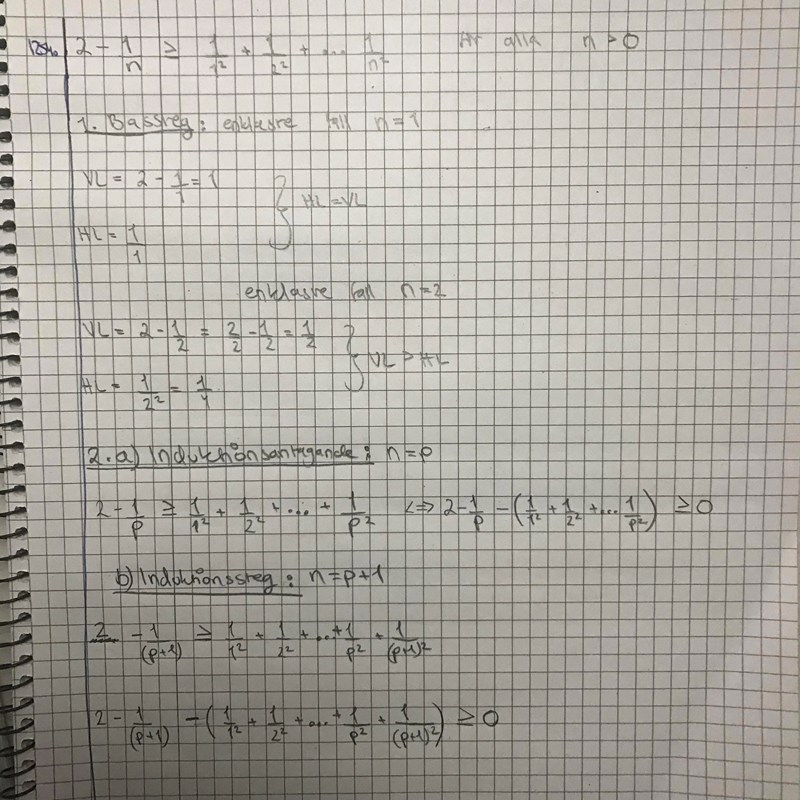 2 - 1/n ≥ 1/1² + 1/2² + ... 1/n² för alla n > 0
1. Bassteg: enklaste fall n = 1
VL = 2 - 1/1 = 1
} HL = VL
HL = 1/1
enklaste fall n = 2
VL = 2 - 1/2 = 2/2 - 1/2 = 1/2
} VL > HL
HL = 1/2² = 1/4
2. a) Induktionsantagande: n = p
2 - 1/p ≥ 1/1² + 1/2² + ... + 1/p² <=> 2 - 1/p - (1/1² + 1/2² + ... 1/p²) ≥ 0
b) Induktionssteg: n = p + 1
2 - 1/(p+1) ≥ 1/1² + 1/2² + ... + 1/p² + 1/(p+1)²
2 - 1/(p+1) - (1/1² + 1/2² + ... + 1/p² + 1/(p+1)²) ≥ 0